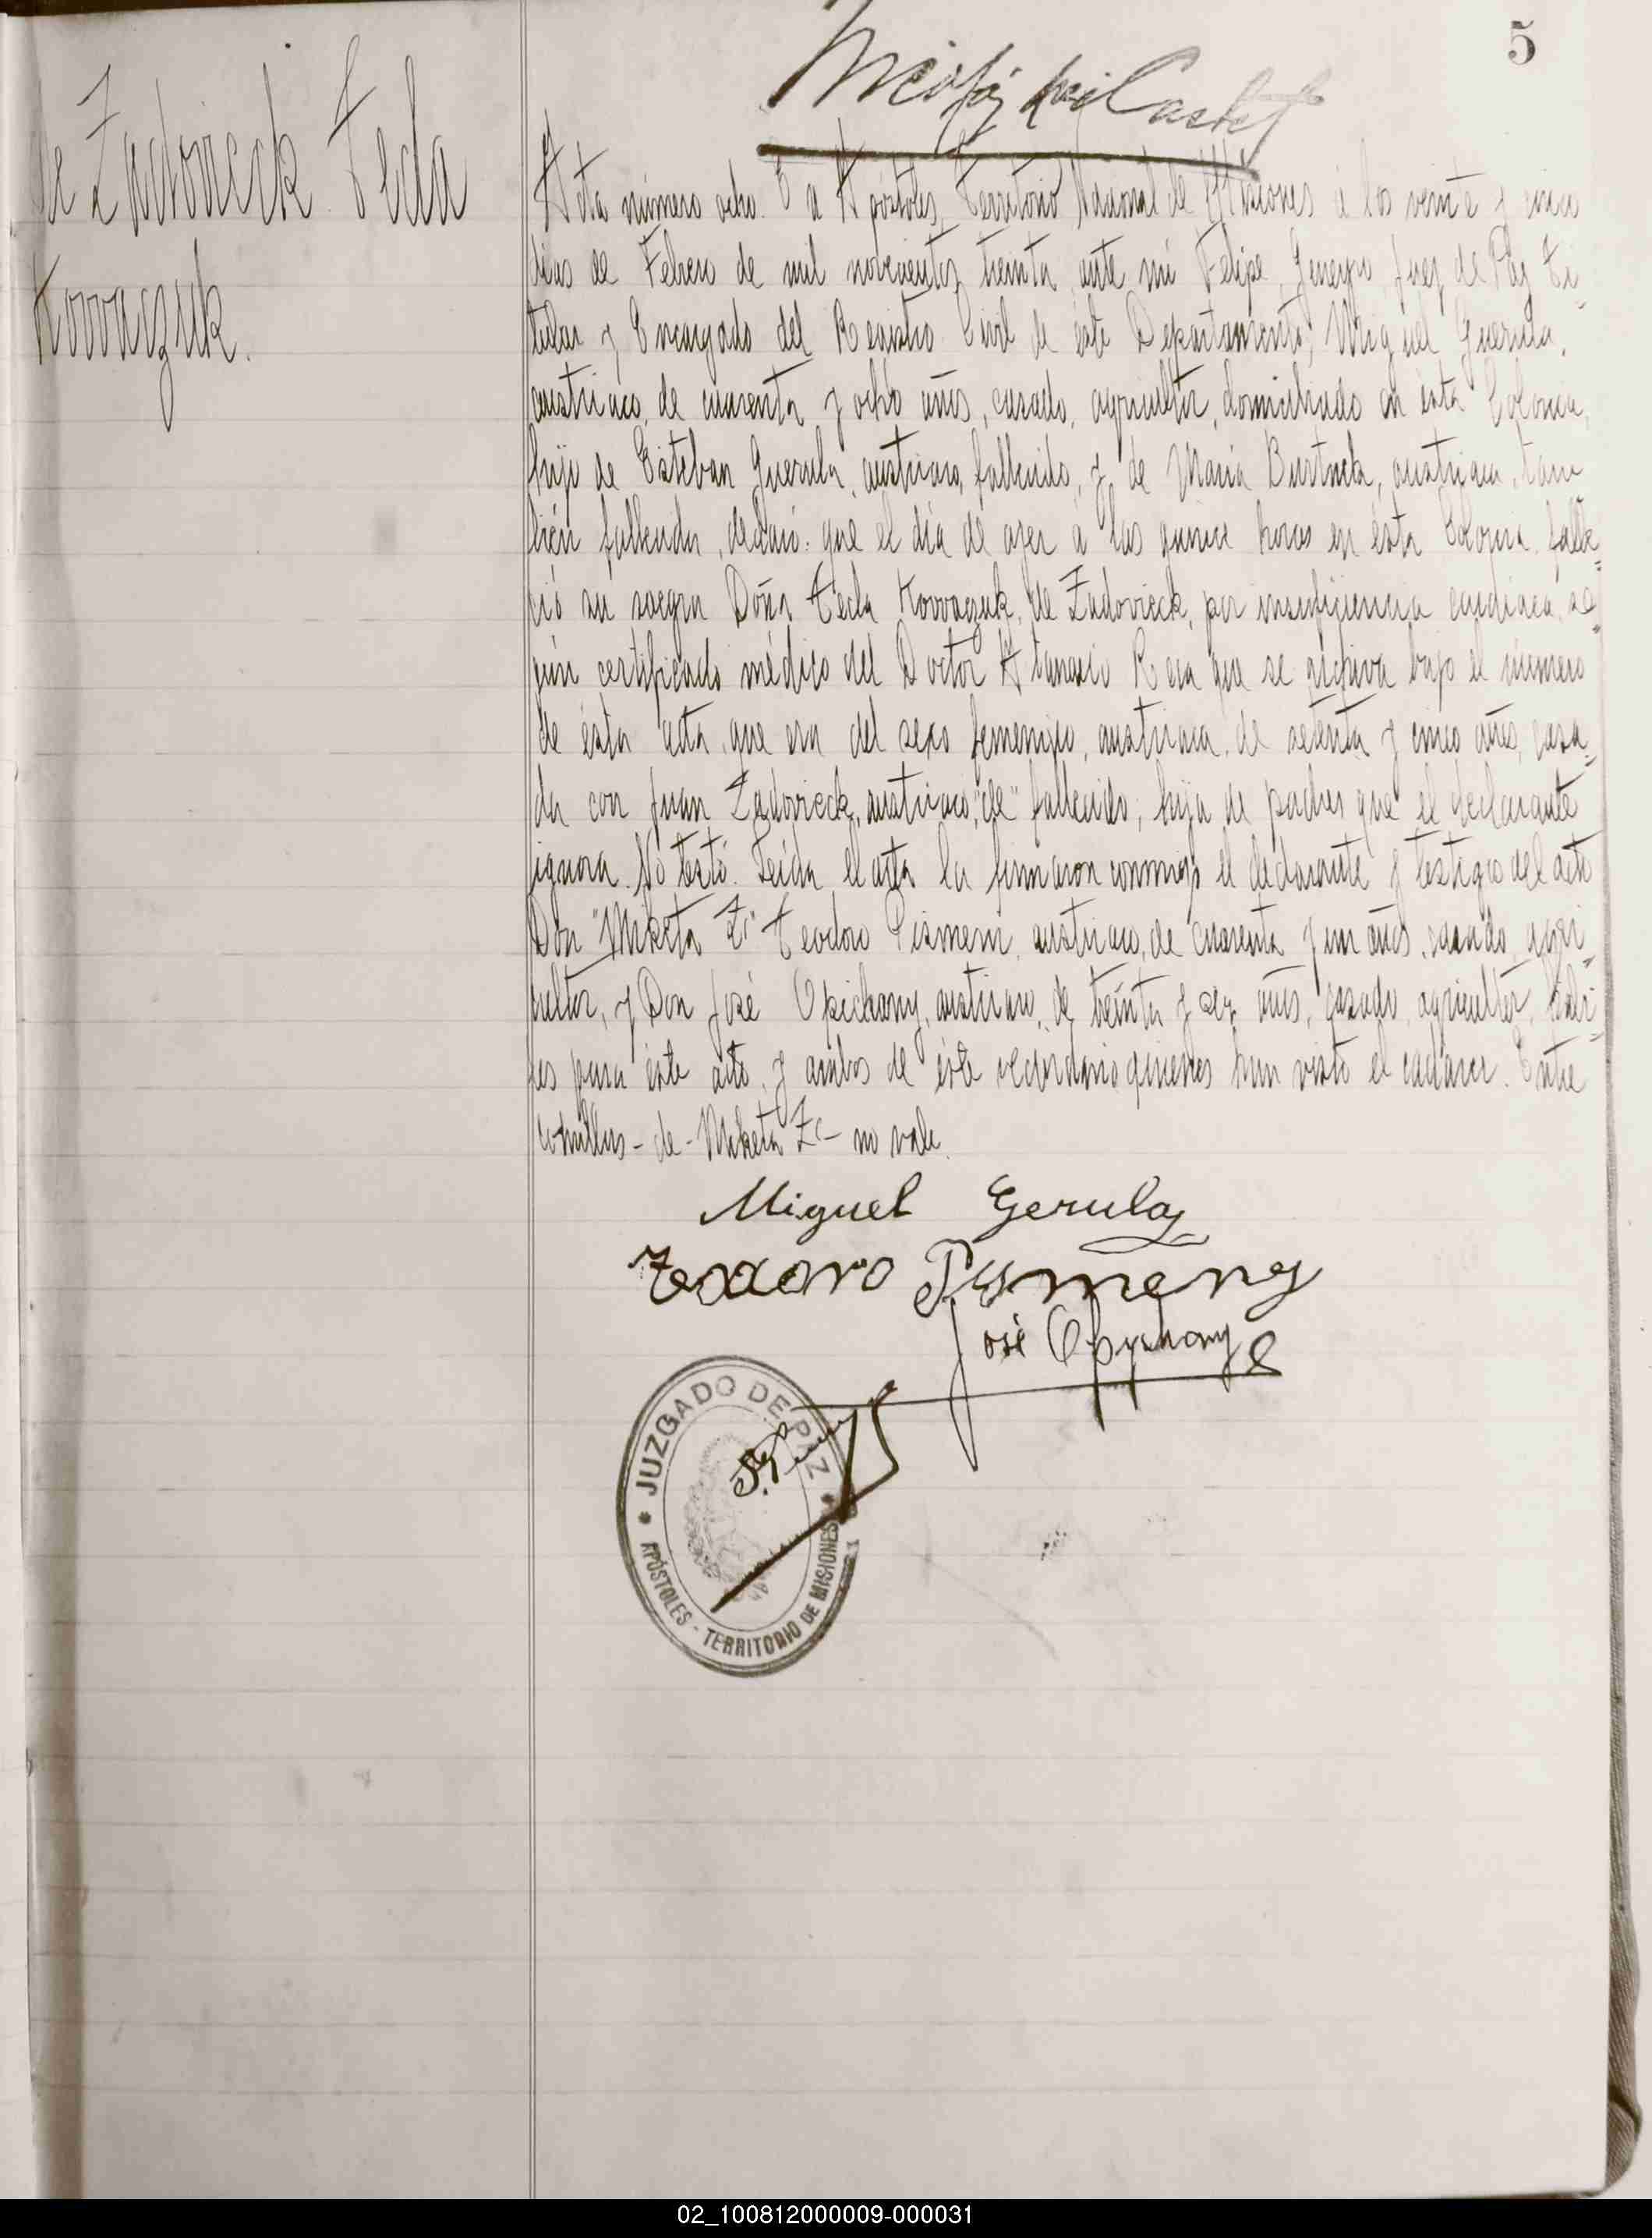 5
de Zadovieck Tecla
Kovvaczuk.
Acta número ocho. En Apóstoles, Territorio Nacional de Misiones á los veinte y cinco
dias de Febrero de mil novecientos treinta, ante mi Felipe, Juez de Paz Ti-
tular y Encargado del Registro Civil de éste Departamento, Miguel Guerula,
austriaco, de cuarenta y ocho años, casado, agricultor, domiciliado en ésta Colonia,
hijo de Esteban Guerula, austriaco, fallecido, y de Maria Burtnek, austriaca, tam
bién fallecida, declaró: que el dia de ayer á las quince horas en ésta Colonia falle-
ció su suegra Doña Tecla Kovvaczuk de Zadovieck, por insuficiencia cardiaca, se-
gún certificado médico del Doctor Atanasio Roca que se archiva bajo el número
de ésta acta, que era del sexo femenino, austriaca, de setenta y cinco años, casa-
da con Juan Zadovieck, austriaco, "de" fallecido; hija de padres que el declarante
ignora. No testó. Leida el acta la firmaron conmigo el declarante y testigos del acto
Don "Miketa Zc" Teodoro Pismeni, austriaco, de cuarenta y un años, casado, agri-
cultor, y Don José Opichany, austriaco, de treinta y seis años, casado, agricultor, hábi-
les para éste acto, y ambos de éste vecindario quienes han visto el cadáver. Entre
comillas - de - Miketa Zc - no vale.
Miguel Gerula
Teodoro Pismeny
José Opychany
JUZGADO DE PAZ
APÓSTOLES - TERRITORIO DE MISIONES
02_100812000009-000031